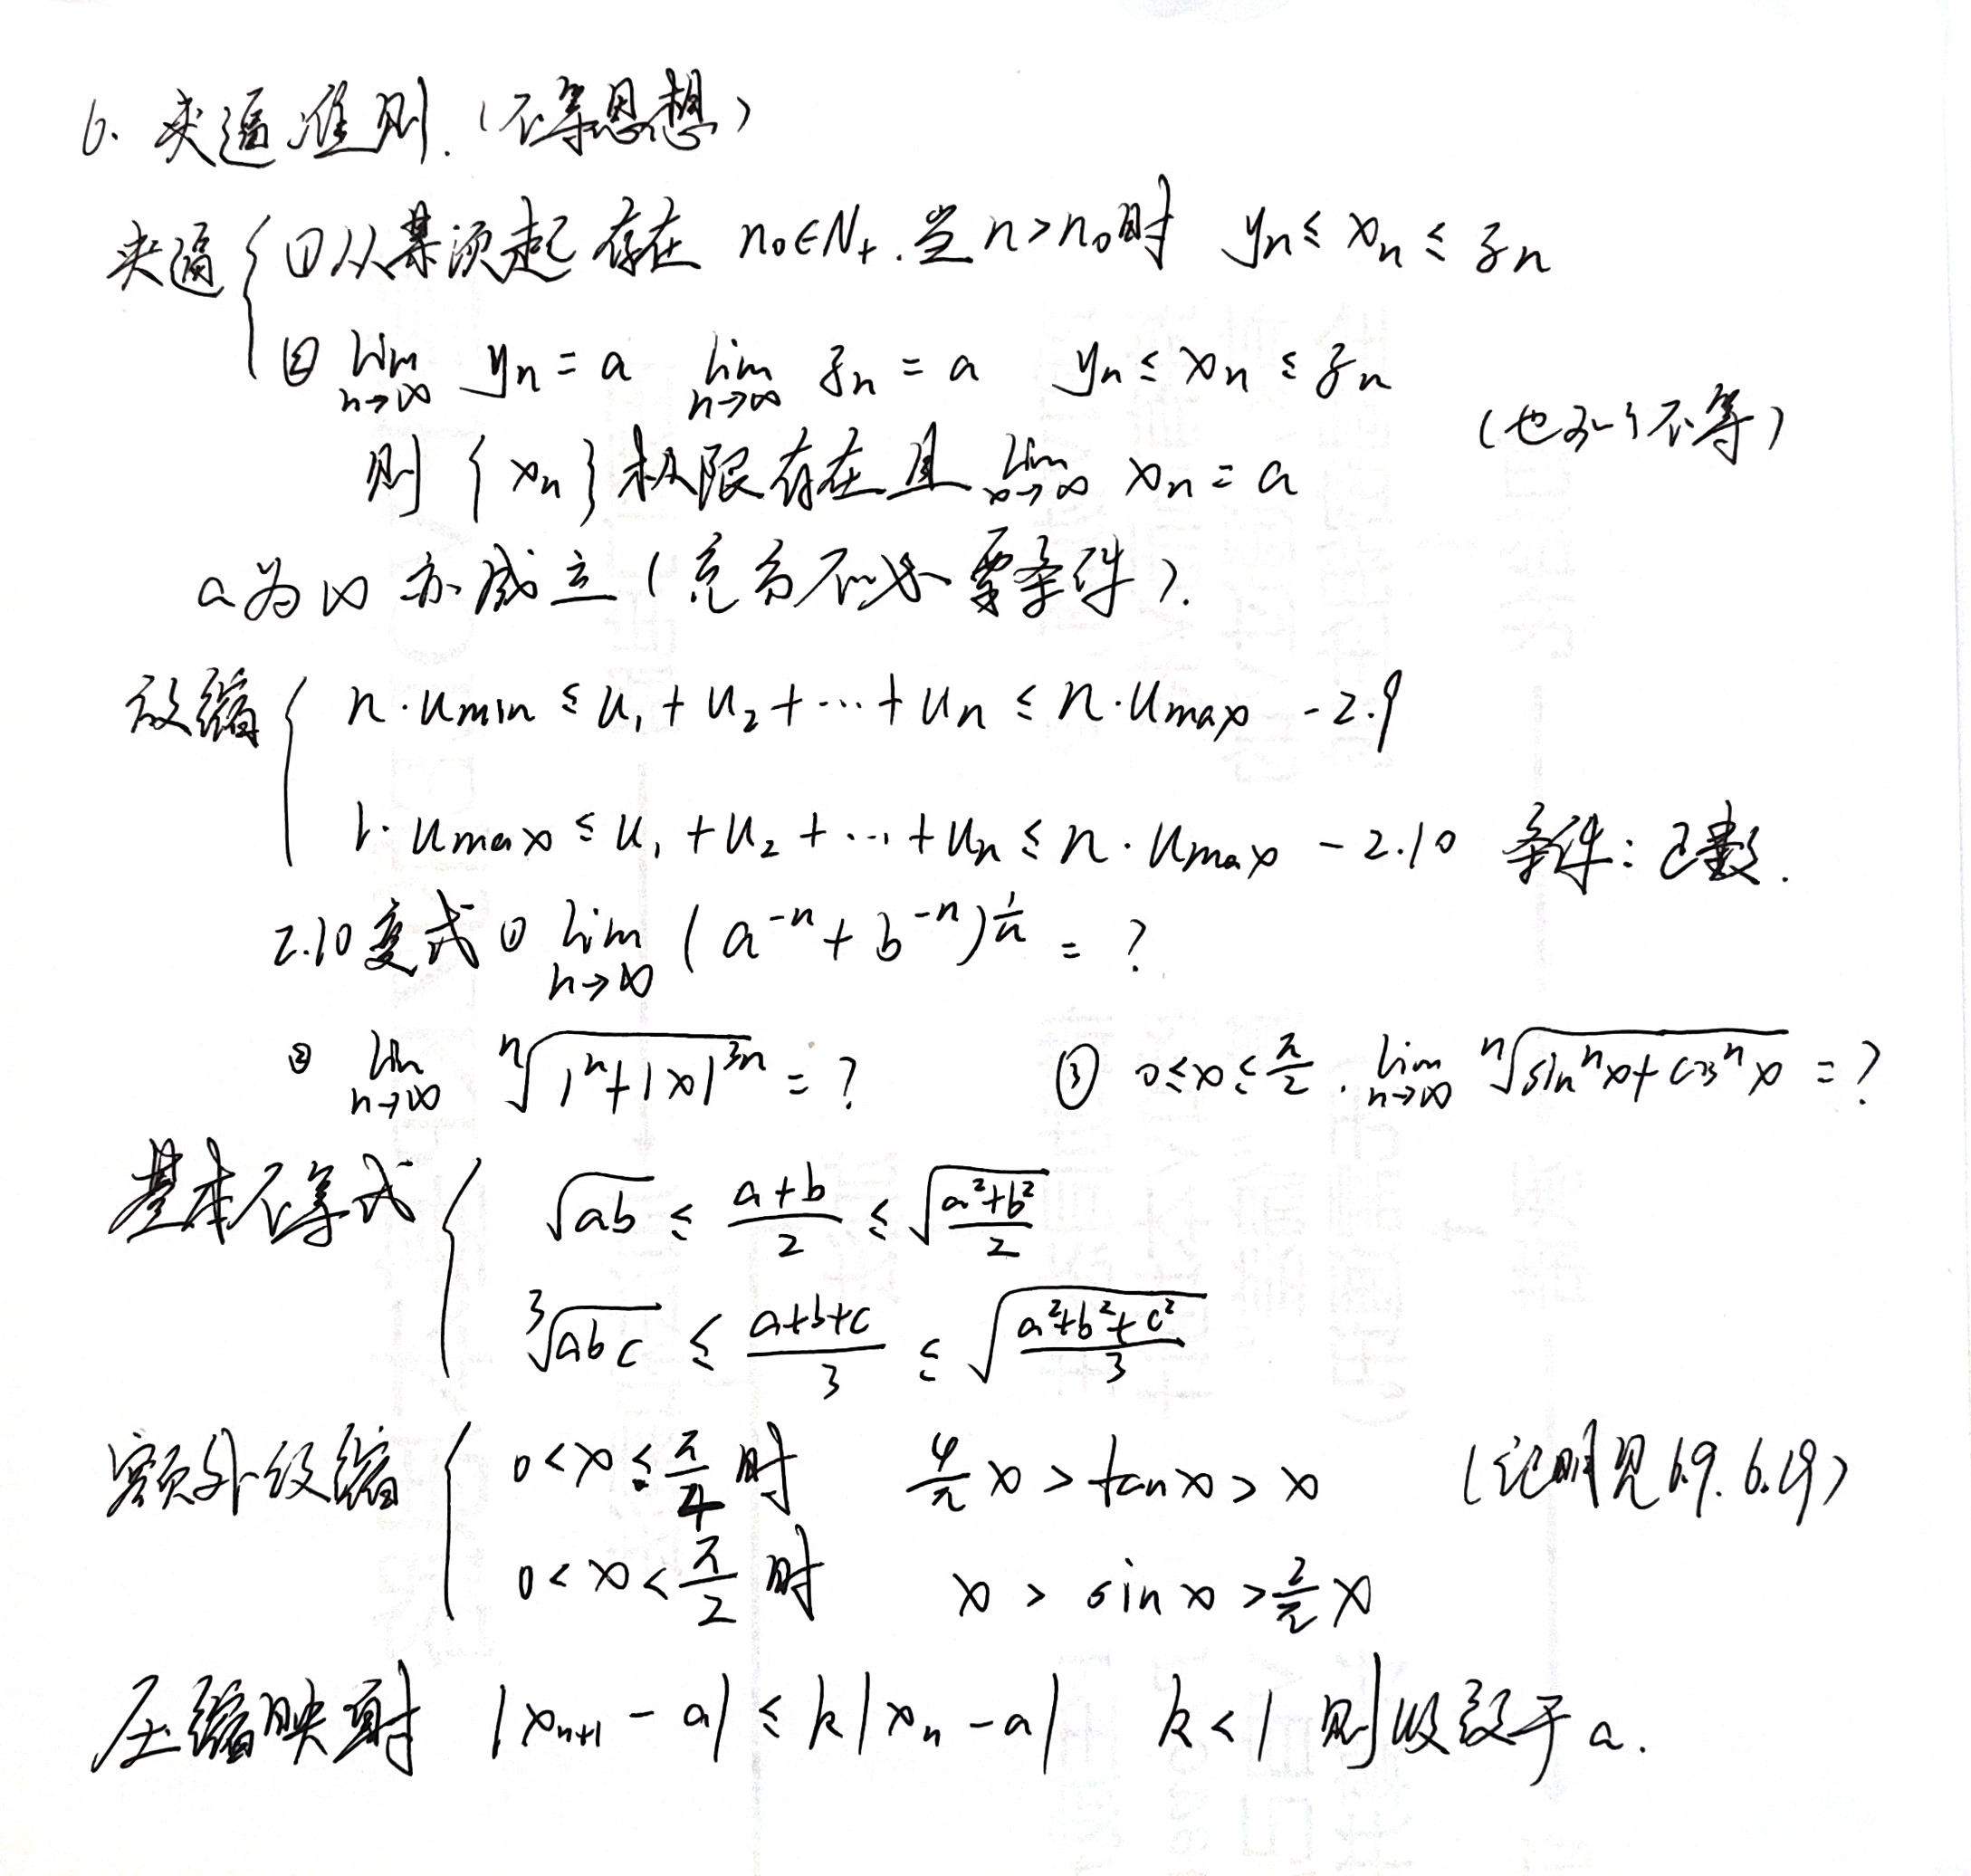 6. 夹逼准则.(不等思想)
夹逼 { ①从某项起 存在 n₀∈N₊. 当 n>n₀时 yn ≤ xn ≤ zn
② lim n→∞ yn = a lim n→∞ zn = a yn ≤ xn ≤ zn
(也可以不等)
则 {xn} 极限存在且 lim x→∞ xn = a
a为∞ 亦成立 (充分不必要条件).
放缩 { n·umin ≤ u₁+u₂+…+un ≤ n·umax -2.9
1·umax ≤ u₁+u₂+…+un ≤ n·umax -2.10 条件: 正数.
2.10变式 ① lim n→∞ (a⁻ⁿ+b⁻ⁿ)^(1/n) = ?
② lim n→∞ ⁿ√(1ⁿ+|x|³ⁿ) = ? ③ 0≤x≤π/2. lim n→∞ ⁿ√(sinⁿx+cosⁿx) = ?
基本不等式 { √ab ≤ (a+b)/2 ≤ √((a²+b²)/2)
³√abc ≤ (a+b+c)/3 ≤ √((a²+b²+c²)/3)
额外放缩 { 0<x≤π/4 时 4/π x > tanx > x (证明见 6.19)
0<x<π/2 时 x > sinx > 2/π x
压缩映射 |xn+1 - a| ≤ k|xn - a| k<1 则收敛于 a.